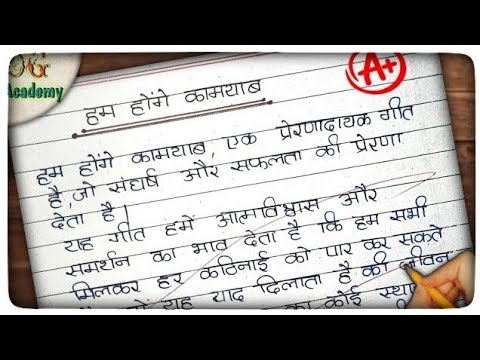 Academy
A+
हम होंगे कामयाब
हम होंगे कामयाब, एक प्रेरणादायक गीत
है, जो संघर्ष और सफलता की प्रेरणा
देता है।
यह गीत हमें आत्मविश्वास और
समर्थन का भाव देता है कि हम सभी
मिलकर हर कठिनाई को पार कर सकते
यह याद दिलाता है की जीवन
का कोई